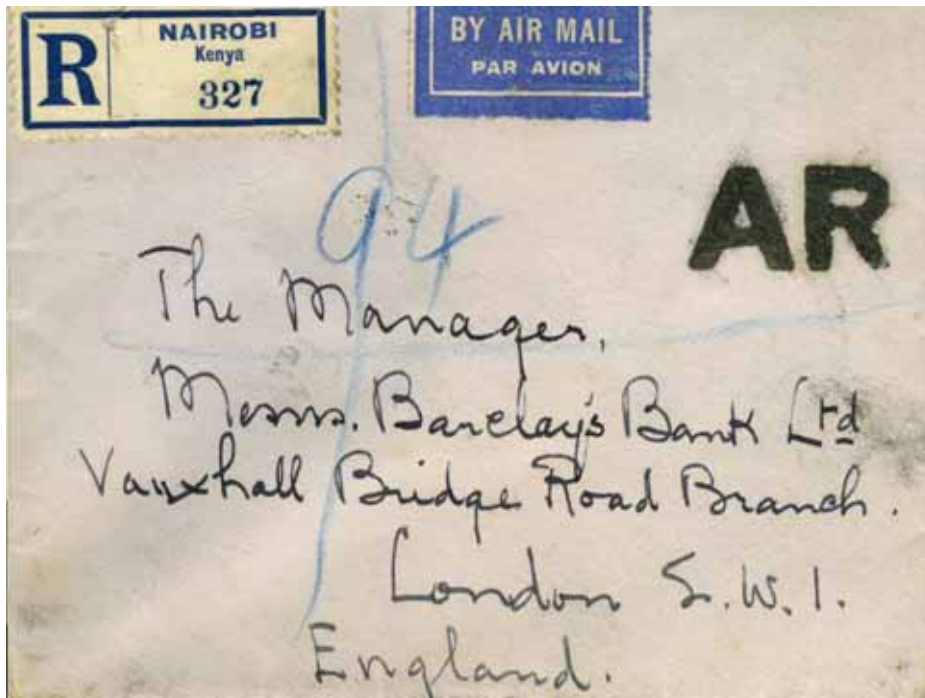 R
NAIROBI
Kenya
327
BY AIR MAIL
PAR AVION
94
AR
The Manager,
Messrs. Barclay's Bank Ltd
Vauxhall Bridge Road Branch.
London S.W.1.
England.